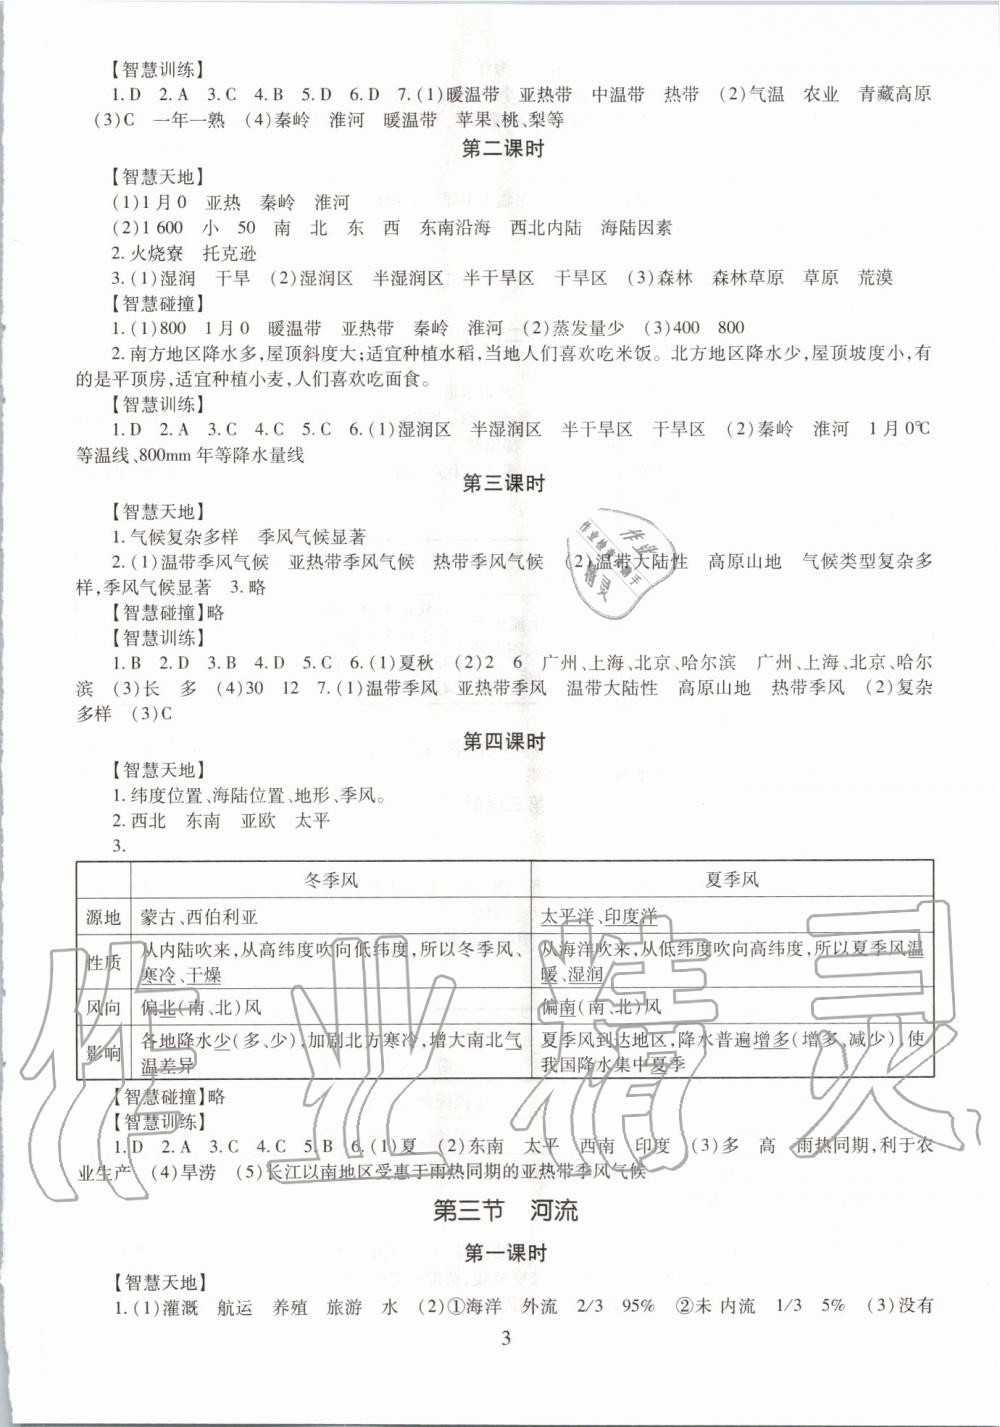 【智慧训练】
1.D 2.A 3.C 4.B 5.D 6.D 7.(1)暖温带 亚热带 中温带 热带 (2)气温 农业 青藏高原
(3)C 一年一熟 (4)秦岭 淮河 暖温带 苹果、桃、梨等
第二课时
【智慧天地】
(1)1月0 亚热 秦岭 淮河
(2)1 600 小 50 南 北 东 西 东南沿海 西北内陆 海陆因素
2.火烧寮 托克逊
3.(1)湿润 干旱 (2)湿润区 半湿润区 半干旱区 干旱区 (3)森林 森林草原 草原 荒漠
【智慧碰撞】
1.(1)800 1月0 暖温带 亚热带 秦岭 淮河 (2)蒸发量少 (3)400 800
2.南方地区降水多,屋顶斜度大;适宜种植水稻,当地人们喜欢吃米饭。北方地区降水少,屋顶坡度小,有
的是平顶房,适宜种植小麦,人们喜欢吃面食。
【智慧训练】
1.D 2.A 3.C 4.C 5.C 6.(1)湿润区 半湿润区 半干旱区 干旱区 (2)秦岭 淮河 1月0℃
等温线、800mm年等降水量线
第三课时
【智慧天地】
1.气候复杂多样 季风气候显著
2.(1)温带季风气候 亚热带季风气候 热带季风气候 (2)温带大陆性 高原山地 气候类型复杂多
样,季风气候显著 3.略
【智慧碰撞】略
【智慧训练】
1.B 2.D 3.B 4.D 5.C 6.(1)夏秋 (2)2 6 广州、上海、北京、哈尔滨 广州、上海、北京、哈尔
滨 (3)长 多 (4)30 12 7.(1)温带季风 亚热带季风 温带大陆性 高原山地 热带季风 (2)复杂
多样 (3)C
第四课时
【智慧天地】
1.纬度位置、海陆位置、地形、季风。
2.西北 东南 亚欧 太平
3.
冬季风 夏季风
源地 蒙古、西伯利亚 太平洋、印度洋
性质 从内陆吹来,从高纬度吹向低纬度,所以冬季风、
寒冷、干燥
从海洋吹来,从低纬度吹向高纬度,所以夏季风温
暖、湿润
风向 偏北(南、北)风 偏南(南、北)风
影响 各地降水少(多、少),加剧北方寒冷,增大南北气
温差异
夏季风到达地区,降水普遍增多(增多、减少),使
我国降水集中夏季
【智慧碰撞】略
【智慧训练】
1.D 2.A 3.C 4.C 5.B 6.(1)夏 (2)东南 太平 西南 印度 (3)多 高 雨热同期,利于农
业生产 (4)旱涝 (5)长江以南地区受惠于雨热同期的亚热带季风气候
第三节 河流
第一课时
【智慧天地】
1.(1)灌溉 航运 养殖 旅游 水 (2)①海洋 外流 2/3 95% ②未 内流 1/3 5% (3)没有
3
作业精灵